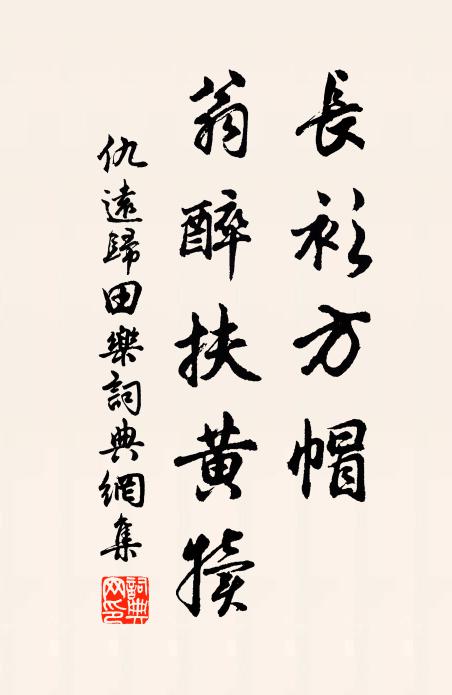 長衫方帽
翁醉扶黃犢
仇遠歸田樂詞典網集
詞典網印